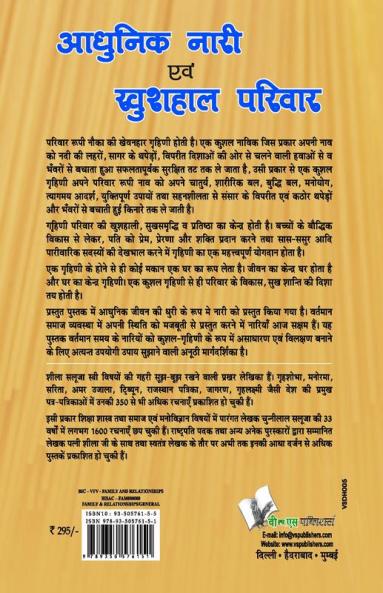 आधुनिक नारी
एवं
खुशहाल परिवार
परिवार रूपी नौका की खेवनहार गृहिणी होती है। एक कुशल नाविक जिस प्रकार अपनी नाव
को नदी की लहरों, सागर के थपेड़ों, विपरीत दिशाओं की ओर से चलने वाली हवाओं से व
भँवरों से बचाता हुआ सफलतापूर्वक सुरक्षित तट तक ले जाता है, उसी प्रकार से एक कुशल
गृहिणी अपने परिवार रूपी नाव को अपने चातुर्य, शारीरिक बल, बुद्धि बल, मनोयोग,
त्यागमय आदर्श, युक्तिपूर्ण उपायों तथा सहनशीलता से संसार के विपरीत एवं कठोर थपेड़ों
और भँवरों से बचाती हुई किनारे तक ले जाती है।
गृहिणी परिवार की खुशहाली, सुखसमृद्धि व प्रतिष्ठा का केन्द्र होती है। बच्चों के बौद्धिक
विकास से लेकर, पति को प्रेम, प्रेरणा और शक्ति प्रदान करने तथा सास-ससुर आदि
पारीवारिक सदस्यों की देखभाल करने में गृहिणी का एक महत्त्वपूर्ण योगदान होता है।
एक गृहिणी के होने से ही कोई मकान एक घर का रूप लेता है। जीवन का केन्द्र घर होता है
और घर का केन्द्र गृहिणी। एक कुशल गृहिणी से ही परिवार के विकास, सुख शान्ति की दिशा
तय होती है।
प्रस्तुत पुस्तक में आधुनिक जीवन की धुरी के रूप मे नारी को प्रस्तुत किया गया है। वर्तमान
समाज व्यवस्था में अपनी स्थिति को मजबूती से प्रस्तुत करने में नारियाँ आज सक्षम हैं। यह
पुस्तक वर्तमान समय के नारियों को कुशल-गृहिणी के रूप में असाधारण एवं विलक्षण बनाने
के लिए अत्यन्त उपयोगी उपाय सुझाने वाली अनूठी मार्गदर्शिका है।
शीला सलूजा स्त्री विषयों की गहरी सूझ-बूझ रखने वाली प्रखर लेखिका हैं। गृहशोभा, मनोरमा,
सरिता, अमर उजाला, ट्रिब्यून, राजस्थान पत्रिका, जागरण, गृहलक्ष्मी जैसी देश की प्रमुख
पत्र-पत्रिकाओं में उनकी 350 से भी अधिक रचनाएँ प्रकाशित हो चुकी हैं।
इसी प्रकार शिक्षा शास्त्र तथा समाज एवं मनोविज्ञान विषयों में पारंगत लेखक चुन्नीलाल सलूजा की 33
वर्षों में लगभग 1600 रचनाएँ छप चुकी हैं। राष्ट्रपति पदक तथा अन्य अनेक पुरस्कारों द्वारा सम्मानित
लेखक पत्नी शीला जी के साथ तथा स्वतंत्र लेखक के तौर पर अभी तक इनकी आधा दर्जन से अधिक
पुस्तकें प्रकाशित हो चुकी हैं।
BIC - VFV - FAMILY AND RELATIONSHIPS
BISAC - FAM000000
FAMILY & RELATIONSHIPS/GENERAL
ISBN10 : 93-505761-5-5
ISBN 978-93-505761-5-1
₹ 295/-
9 789350 576151
वी एण्ड एस पब्लिशर्स
E-mail: info@vspublishers.com
Website: www.vspublishers.com
दिल्ली • हैदराबाद • मुम्बई